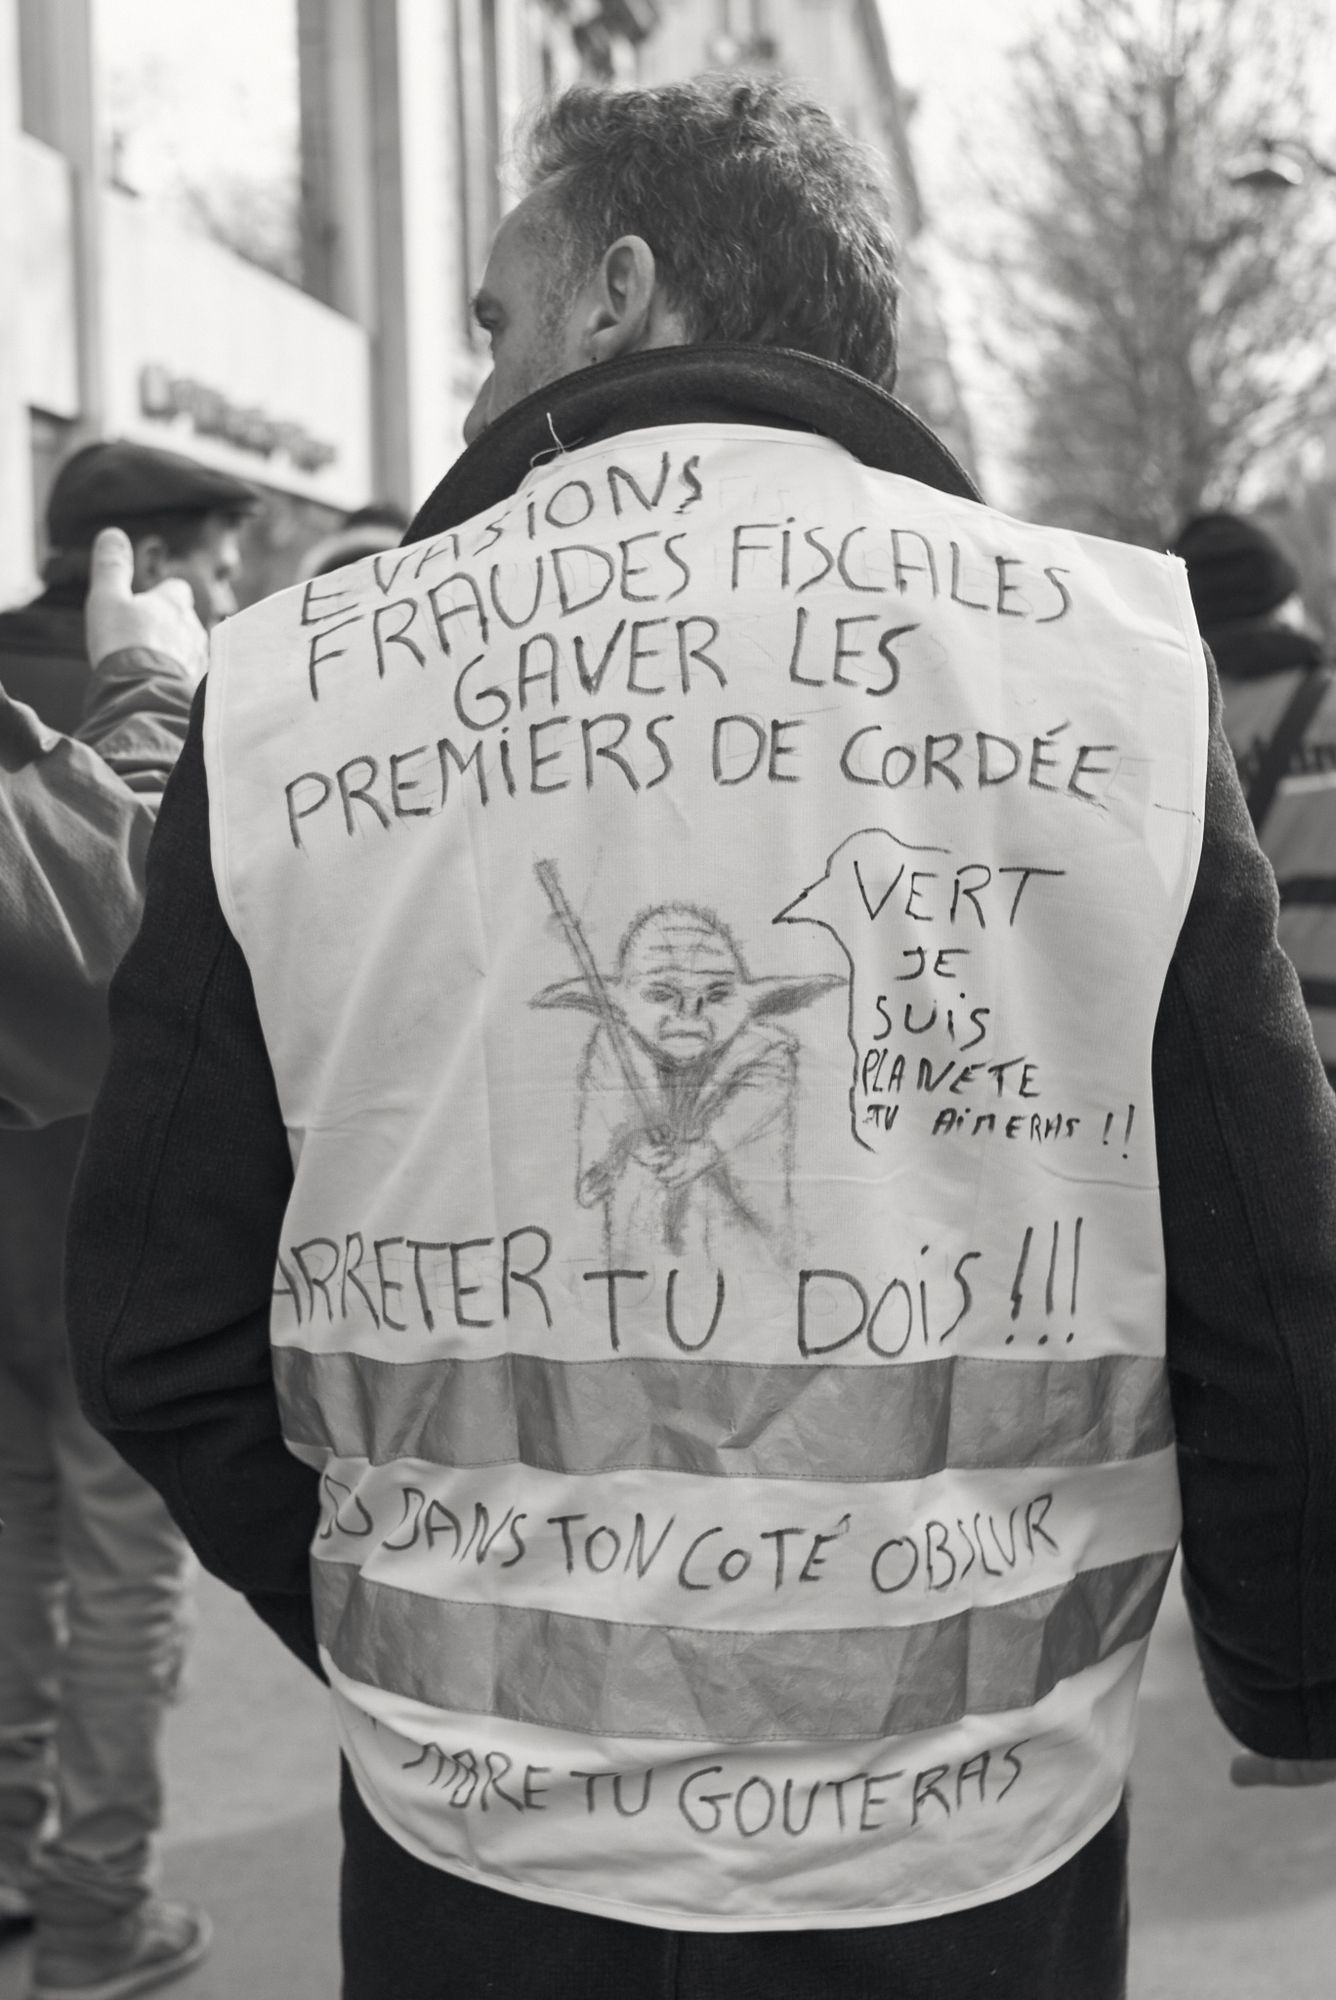 EVASIONS
FRAUDES FiSCALES
GAVER LES
PREMiERS DE CORDÉE
VERT
JE
SUiS
PLANETE
TU AiMERAS !!
ARRETER TU DOiS !!!
DANS TON COTÉ OBSCUR
TU GOUTERAS